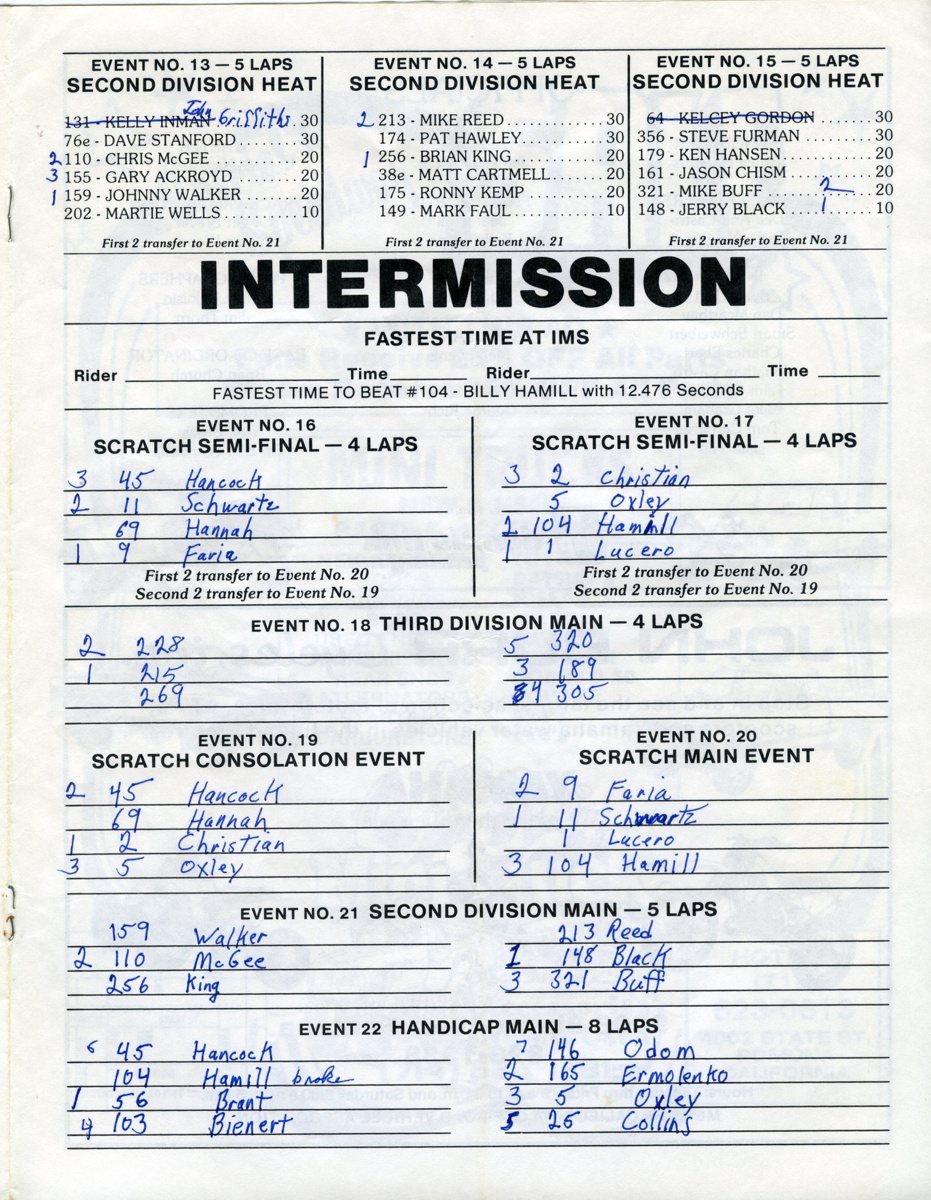 EVENT NO. 13 — 5 LAPS
SECOND DIVISION HEAT
John Griffiths
131 - KELLY INMAN 30
76e - DAVE STANFORD .......... 30
2 110 - CHRIS McGEE .......... 20
3 155 - GARY ACKROYD .......... 20
1 159 - JOHNNY WALKER .......... 20
202 - MARTIE WELLS .......... 10
First 2 transfer to Event No. 21
EVENT NO. 14 — 5 LAPS
SECOND DIVISION HEAT
2 213 - MIKE REED .......... 30
174 - PAT HAWLEY .......... 30
1 256 - BRIAN KING .......... 20
38e - MATT CARTMELL .......... 20
175 - RONNY KEMP .......... 20
149 - MARK FAUL .......... 10
First 2 transfer to Event No. 21
EVENT NO. 15 — 5 LAPS
SECOND DIVISION HEAT
64 - KELCEY GORDON .......... 30
356 - STEVE FURMAN .......... 30
179 - KEN HANSEN .......... 20
161 - JASON CHISM .......... 20
321 - MIKE BUFF .......... 2 20
148 - JERRY BLACK .......... 1 10
First 2 transfer to Event No. 21
INTERMISSION
FASTEST TIME AT IMS
Rider Time Rider Time
FASTEST TIME TO BEAT #104 - BILLY HAMILL with 12.476 Seconds
EVENT NO. 16
SCRATCH SEMI-FINAL — 4 LAPS
3 45 Hancock
2 11 Schwartz
69 Hannah
1 9 Faria
First 2 transfer to Event No. 20
Second 2 transfer to Event No. 19
EVENT NO. 17
SCRATCH SEMI-FINAL — 4 LAPS
3 2 Christian
5 Oxley
2 104 Hamill
1 1 Lucero
First 2 transfer to Event No. 20
Second 2 transfer to Event No. 19
EVENT NO. 18 THIRD DIVISION MAIN — 4 LAPS
2 228
1 215
269
5 320
3 189
4 305
EVENT NO. 19
SCRATCH CONSOLATION EVENT
2 45 Hancock
69 Hannah
1 2 Christian
3 5 Oxley
EVENT NO. 20
SCRATCH MAIN EVENT
2 9 Faria
1 11 Schwartz
1 Lucero
3 104 Hamill
EVENT NO. 21 SECOND DIVISION MAIN — 5 LAPS
159 Walker
2 110 McGee
256 King
213 Reed
1 148 Black
3 321 Buff
EVENT 22 HANDICAP MAIN — 8 LAPS
6 45 Hancock
104 Hamill broke
1 56 Brant
4 103 Bienert
7 146 Odom
2 165 Ermolenko
3 5 Oxley
5 26 Collins